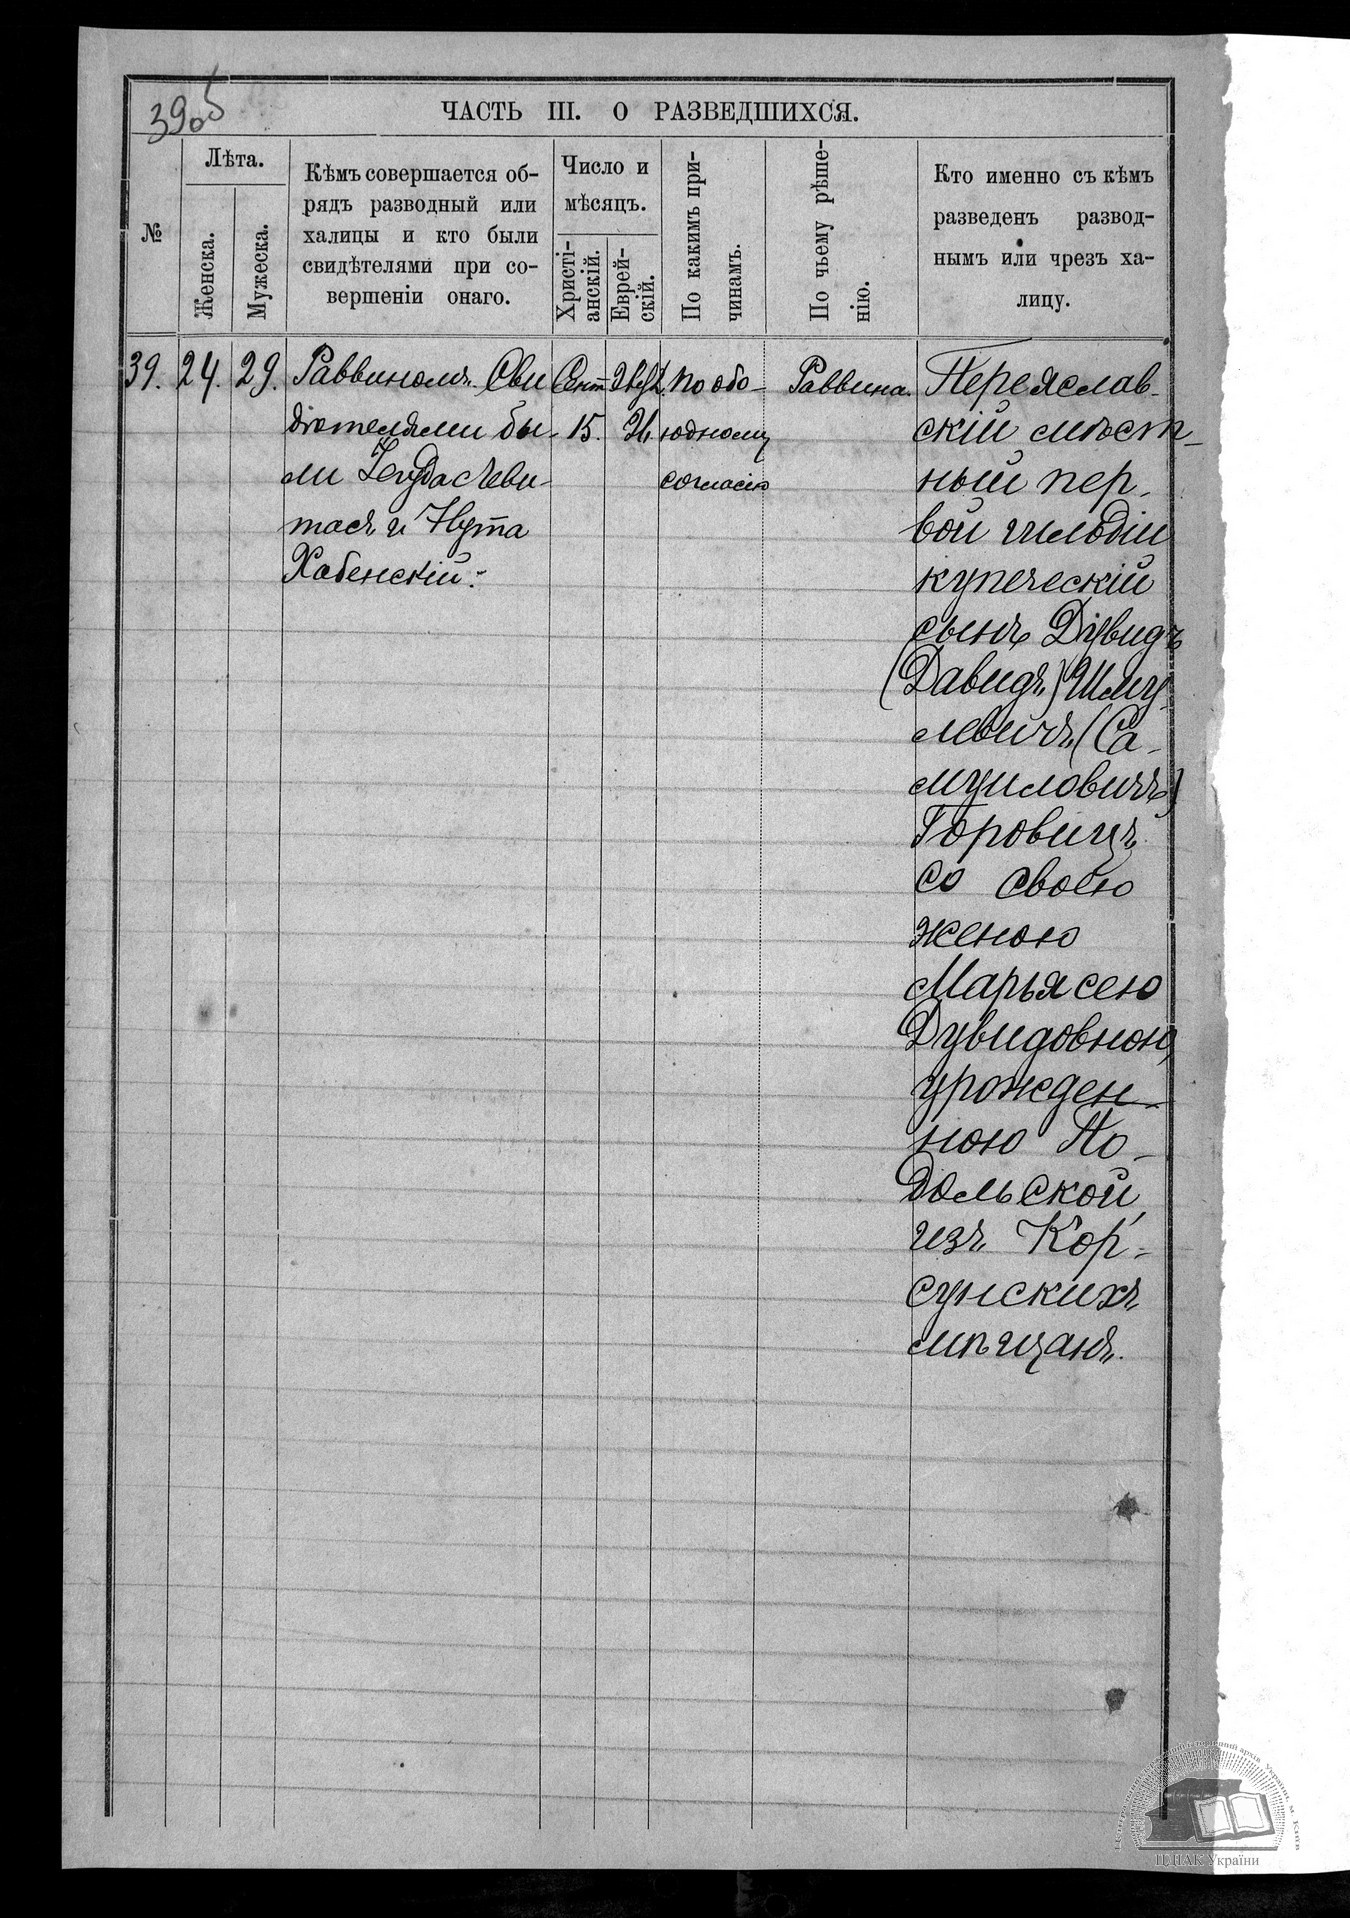 39об
ЧАСТЬ III. О РАЗВЕДШИХСЯ.
№
Лѣта.
Женска.
Мужеска.
Кѣмъ совершается об-
рядъ разводный или
халицы и кто были
свидѣтелями при со-
вершеніи онаго.
Число и
мѣсяцъ.
Христі-
анскій.
Еврей-
скій.
По какимъ при-
чинамъ.
По чьему рѣше-
нію.
Кто именно съ кѣмъ
разведенъ развод-
нымъ или чрезъ ха-
лицу.
39.
24.
29.
Раввиномъ. Сви
дѣтелями бы-
ли
и Нута
Хабенскій.
Сент
15.
По обо-
юдному
согласію
Раввина.
Переяслав-
скій мѣст-
ный пер-
вой гильдіи
купеческій
сынъ Дувидъ
(Давидъ) Шму-
левичъ (Са-
муиловичъ)
Горовицъ
со своею
женою
Марьясею
Дувидовною,
урожден-
ною По-
дольской,
изъ Кор-
сунскихъ
мѣщанъ.
ЦДІАК України